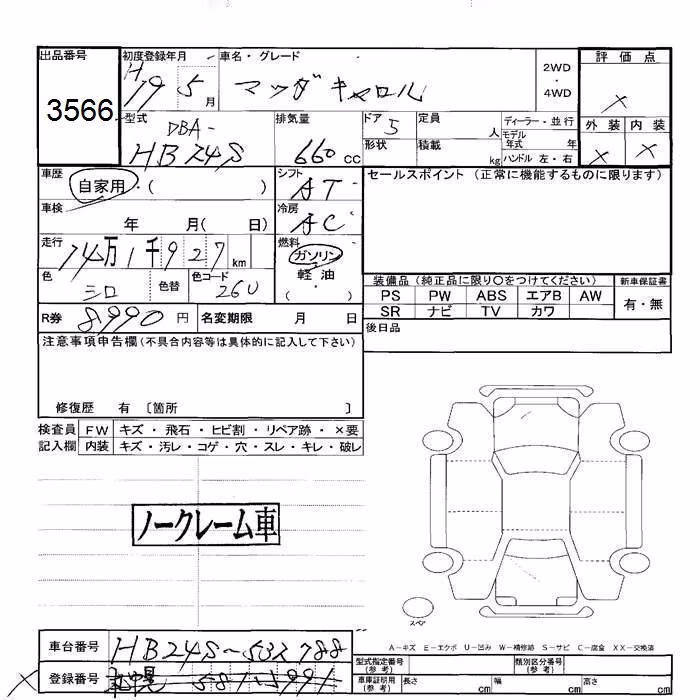 出品番号 初度登録年月 車名・グレード 評価点
3566 H19 5月 マツダ キャロル 2WD・4WD ×
型式 排気量 ドア 定員 ディーラー・並行 外装 内装
DBA-HB24S 660cc 5 人 モデル年式 年 × ×
形状 積載 kg ハンドル 左・右
車歴 自家用・( ) シフト AT セールスポイント (正常に機能するものに限ります)
車検 年 月( 日) 冷房 AC
走行 14万1千927km 燃料 ガソリン
軽油
( )
色 シロ 色替 色コード 26U 装備品 (純正品に限り○をつけてください) 新車保証書
PS PW ABS エアB AW 有・無
SR ナビ TV カワ
R券 8,990円 名変期限 月 日 後日品
注意事項申告欄 (不具合内容等は具体的に記入して下さい)
修復歴 有 〔箇所 〕
検査員 FW キズ・飛石・ヒビ割・リペア跡・×要
記入欄 内装 キズ・汚レ・コゲ・穴・スレ・キレ・破レ
ノークレーム車
スペア
A-キズ E-エクボ U-凹み W-補修跡 S-サビ C-腐食 XX-交換済
車台番号 HB24S-532788
型式指定番号 (参考) 類別区分番号 (参考)
× 登録番号
車庫証明用 (参考) 長さ cm 幅 cm 高さ cm